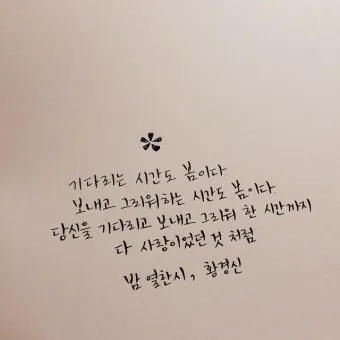 *
기다리는 시간도 봄이다.
보내고 그리워하는 시간도 봄이다.
당신을 기다리고 보내고 그리워 한 시간까지
다 사랑이었던 것 처럼
밤 열한시, 황경신